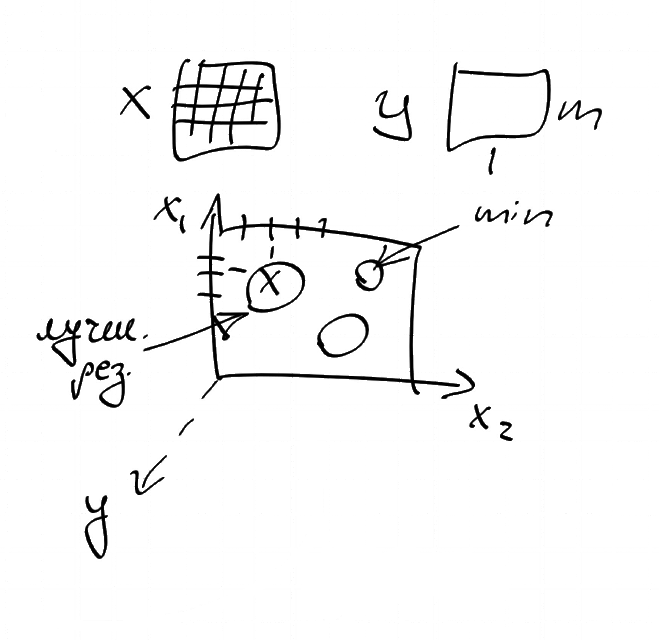 x y m
1
x₁ min
x
лучш.
рез.
x₂
y